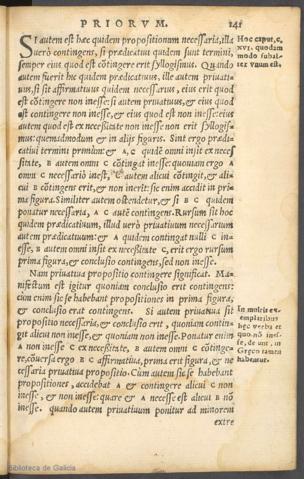 PRIORVM. 241
SI autem est hæc quidem propositionum necessaria, illa
uerò contingens, si prædicatiui quidem sunt termini,
semper eius quod est cōtingere erit syllogismus. Quando
autem fuerit hic quidem prædicatiuus, ille autem priuati-
uus, si sit affirmatiuus quidem necessarius, eius erit quod
est cōtingere non inesse: si autem priuatiuus, & eius quod
est contingere non inesse, & eius quod est non inesse: eius
autem quod est ex necessitate non inesse non erit syllogis-
mus: quemadmodum & in alijs figuris. Sint ergo prædi-
catiui termini primùm: & A, C quidē omni insit ex neces
sitate, B autem omni C cōtingat inesse: quoniam ergo A
omni C necessariò inest, C autem alicui cōtingit, & ali-
cui B cōtingens erit, & non inerit: sic enim accidit in pri-
ma figura. Similiter autem ostendetur, & si B C quidem
ponatur necessaria, A C autē contingens. Rursum sit hoc
quidem prædicatiuum, illud uerò priuatiuum necessarium
autem prædicatiuum: & A quidem contingat nulli C in-
esse, B autem omni insit ex necessitate C, erit ergo rursum
prima figura, & conclusio contingens, sed non inesse.
Nam priuatiua propositio contingere significat. Ma-
nifestum est igitur quoniam conclusio erit contingens:
cùm enim sic se habebant propositiones in prima figura,
& conclusio erat contingens. Si autem priuatiua sit
propositio necessaria, & conclusio erit, quoniam contin-
git alicui non inesse, & quoniam non inesse. Ponatur enim
A non inesse C ex necessitate, B autem omni C cōtinge-
re, cōuersa ergo B C affirmatiua, prima erit figura, & ne
cessaria priuatiua propositio. Cùm autem sic se habebant
propositiones, accidebat A & contingere alicui C non
inesse, & non inesse: quare & A necesse est alicui B nō
inesse. quando autem priuatiuum ponitur ad minorem
extre
Hoc caput, c.
XVI. quodam
modo subal-
ter vnum est.
In multis ex-
emplaribus
hæc verba et
quo. nō ines-
se, de unt, in
Græco tamen
habentur.
Biblioteca de Galicia